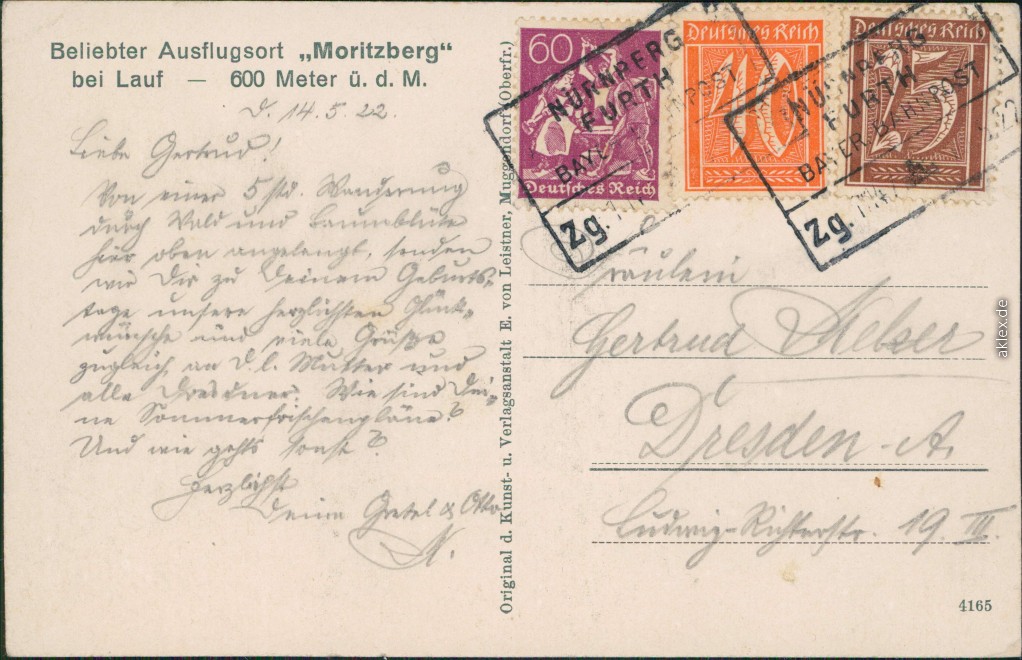 Beliebter Ausflugsort „Moritzberg“
bei Lauf — 600 Meter ü. d. M.
d. 14.5.22.
Liebe Gertrud!
Von einer 5 std. Wanderung
durch Wald und Baumblüte
hier oben angelangt, senden
wir Dir zu Deinem Geburts-
tage unsere herzlichsten Glück-
wünsche und viele Grüße
zugleich an d. l. Mutter und
alle Dresdner. Wie sind Dei-
ne Sommerfrischenpläne?
Und wie gehts sonst?
Herzlichst
Deine Gretel & Otto
N.
Original d. Kunst- u. Verlagsanstalt E. von Leistner, Muggendorf (Oberfr.)
60
Deutsches Reich
Deutsches Reich
40
Deutsches Reich
75
NÜRNBERG
FÜRTH
Zg.
NÜRNBERG
FÜRTH
BAYER.BAHNPOST
Zg.
22
Fräulein
Gertrud Melzer
Dresden-A.
Ludwig-Richterstr. 19. III.
4165
aklex.de